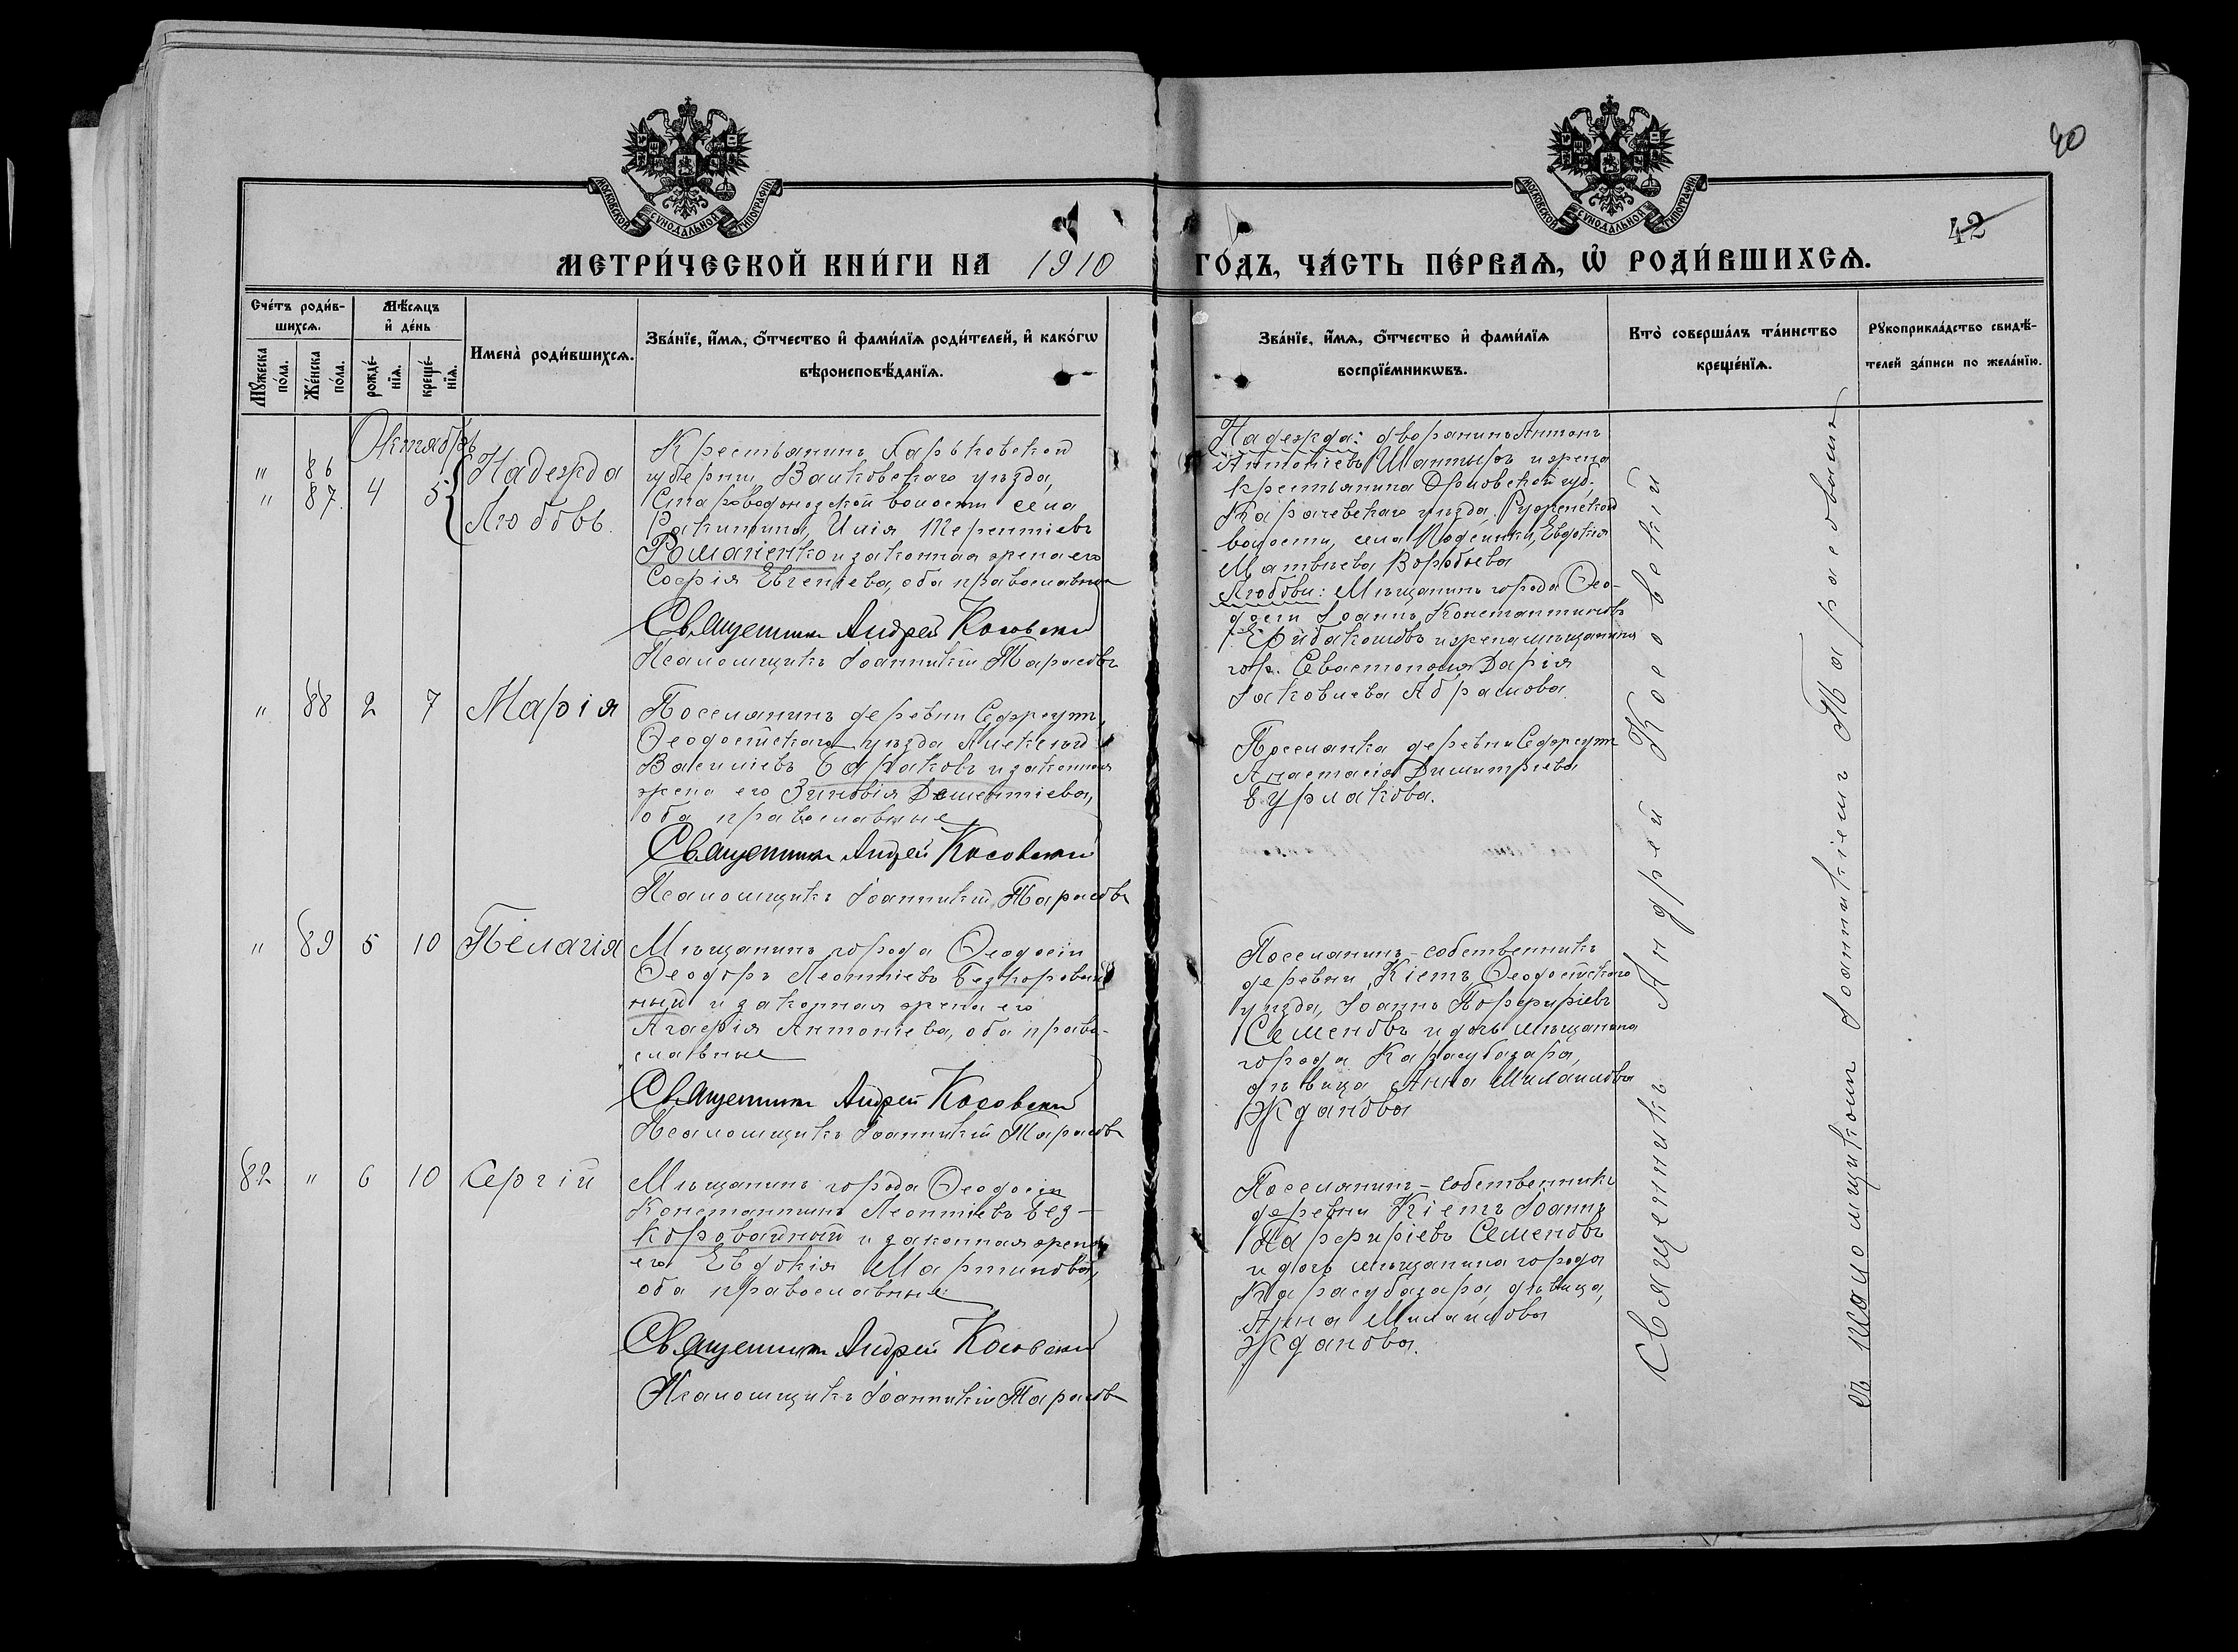 40
42
МОСКОВСКОЙ СѴНОДАЛЬНОЙ ТИПОГРАФІИ.
МОСКОВСКОЙ СѴНОДАЛЬНОЙ ТИПОГРАФІИ.
МЕТРИ́ЧЕСКОЙ КНИ́ГИ НА 1910 ГО́ДЪ, ЧА́СТЬ ПЕ́РВАѦ, Ѡ҆ РОДИ́ВШИХСѦ.
Сче́тъ роди́в-
шихсѧ.
Мѣ́сѧцъ
и҆ де́нь
Мꙋ́жеска
по́ла.
Же́нска
по́ла.
рожде́-
нїѧ.
креще́-
нїѧ.
Имена̀ роди́вшихсѧ.
Зва́нїе, и҆́мѧ, ѻ҆́тчество и҆ фами́лїѧ роди́телей, и҆ како́гѡ
вѣроисповѣ́данїѧ.
Зва́нїе, и҆́мѧ, ѻ҆́тчество и҆ фами́лїѧ
воспрїе́мникѡвъ.
Кто̀ соверша́лъ та́инство
креще́нїѧ.
Рꙋкоприкла́дство свидѣ́-
телей за́писи по жела́нїю.
Октябрь
" 86
" 87. 4 5
Надежда
Любовь.
Крестьянинъ Харьковской
губерніи, Валковскаго уѣзда,
Староводолазской волости села
Ракитины, Илія Терентіевъ
Романенко и законная жена его
Софія Евгеніева, оба православные
Священникъ Андрей Косовскій
Псаломщикъ Іоанникій Тарасовъ
Надежда: дворянинъ Антонъ
Антоніевъ Шантыръ и жена
крестьянина Орловской губ.
Карачевскаго уѣзда,
волости, села Евдокія
Матвѣева Воробьева
Любови: Мѣщанинъ города Ѳео-
досіи Іоаннъ Константиновъ
и жена мѣщанина
гор. Севастополя Дарія
Іаковлева Абрамова.
" 88 2 7 Марія
Поселянинъ деревни Седжеутъ,
Ѳеодосійскаго уѣзда Алексѣй
Василіевъ Бурлаковъ и законная
жена его Зиновія Дементіева,
оба православные
Священникъ Андрей Косовскій
Псаломщикъ Іоанникій Тарасовъ
Поселянка деревни Седжеутъ
Анастасія Димитріева
Бурлакова.
" 89 5 10 Пелагія
Мѣщанинъ города Ѳеодосіи
Ѳеодоръ Леонтіевъ Безкоровай-
ный и законная жена его
Агафія Антоніева, оба право-
славные
Священникъ Андрей Косовскій
Псаломщикъ Іоанникій Тарасовъ
Поселянинъ-собственникъ
деревни Кіетъ Ѳеодосійскаго
уѣзда, Іоаннъ Порфиріевъ
Семеновъ и дочь мѣщанина
города Карасубазара,
дѣвица Анна Михаилова
Жданова
82 " 6 10 Сергій
Мѣщанинъ города Ѳеодосіи
Константинъ Леонтіевъ Без-
коровайный и законная жена
его Евдокія Мартинова,
оба православные
Священникъ Андрей Косовскій
Псаломщикъ Іоанникій Тарасовъ
Поселянинъ-собственникъ
деревни Кіетъ Іоаннъ
Порфиріевъ Семеновъ
и дочь мѣщанина города
Карасубазара, дѣвица,
Анна Михаилова
Жданова.
Священникъ Андрей Косовскій
съ псаломщикомъ Іоанникіемъ Тарасовымъ